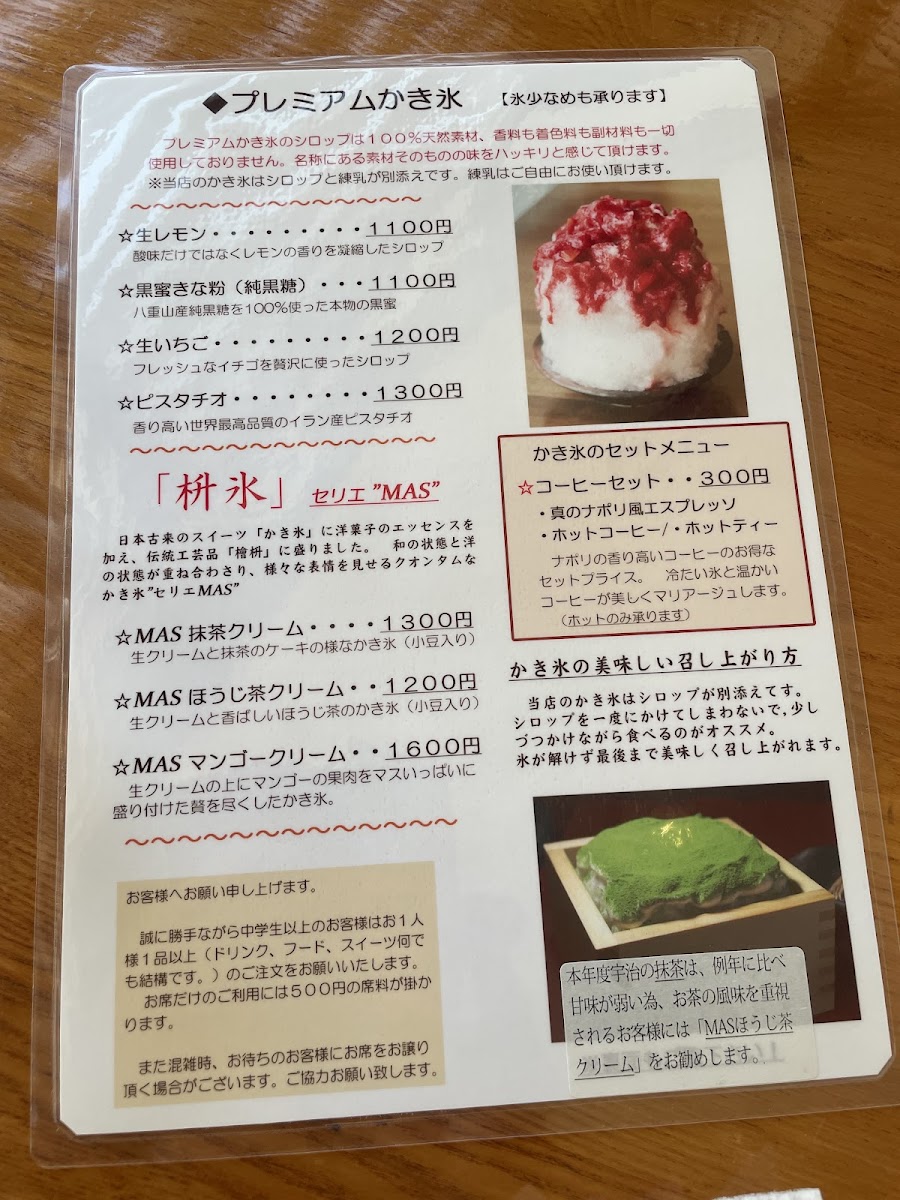 ◆プレミアムかき氷 【氷少なめも承ります】
プレミアムかき氷のシロップは１００％天然素材、香料も着色料も副材料も一切
使用しておりません。名称にある素材そのものの味をハッキリと感じて頂けます。
※当店のかき氷はシロップと練乳が別添えです。練乳はご自由にお使い頂けます。
☆生レモン・・・・・・・・・１１００円
酸味だけではなくレモンの香りを凝縮したシロップ
☆黒蜜きな粉（純黒糖）・・・１１００円
八重山産純黒糖を100%使った本物の黒蜜
☆生いちご・・・・・・・・・１２００円
フレッシュなイチゴを贅沢に使ったシロップ
☆ピスタチオ・・・・・・・・１３００円
香り高い世界最高品質のイラン産ピスタチオ
「枡氷」 セリエ ”MAS”
日本古来のスイーツ「かき氷」に洋菓子のエッセンスを
加え、伝統工芸品「檜枡」に盛りました。 和の状態と洋
の状態が重ね合わさり、様々な表情を見せるクオンタムな
かき氷”セリエMAS”
☆MAS 抹茶クリーム・・・・１３００円
生クリームと抹茶のケーキの様なかき氷（小豆入り）
☆MAS ほうじ茶クリーム・・１２００円
生クリームと香ばしいほうじ茶のかき氷（小豆入り）
☆MAS マンゴークリーム・・１６００円
生クリームの上にマンゴーの果肉をマスいっぱいに
盛り付けた贅を尽くしたかき氷。
お客様へお願い申し上げます。
誠に勝手ながら中学生以上のお客様はお１人
様１品以上（ドリンク、フード、スイーツ何で
も結構です。）のご注文をお願いいたします。
お席だけのご利用には５００円の席料が掛か
ります。
また混雑時、お待ちのお客様にお席をお譲り
頂く場合がございます。ご協力お願い致します。
かき氷のセットメニュー
☆コーヒーセット・・３００円
・真のナポリ風エスプレッソ
・ホットコーヒー/・ホットティー
ナポリの香り高いコーヒーのお得な
セットプライス。 冷たい氷と温かい
コーヒーが美しくマリアージュします。
（ホットのみ承ります）
かき氷の美味しい召し上がり方
当店のかき氷はシロップが別添えてす。
シロップを一度にかけてしまわないで,少し
づつかけながら食べるのがオススメ。
氷が解けず最後まで美味しく召し上がれます。
本年度宇治の抹茶は、例年に比べ
甘味が弱い為、お茶の風味を重視
されるお客様には「MASほうじ茶
クリーム」をお勧めします。